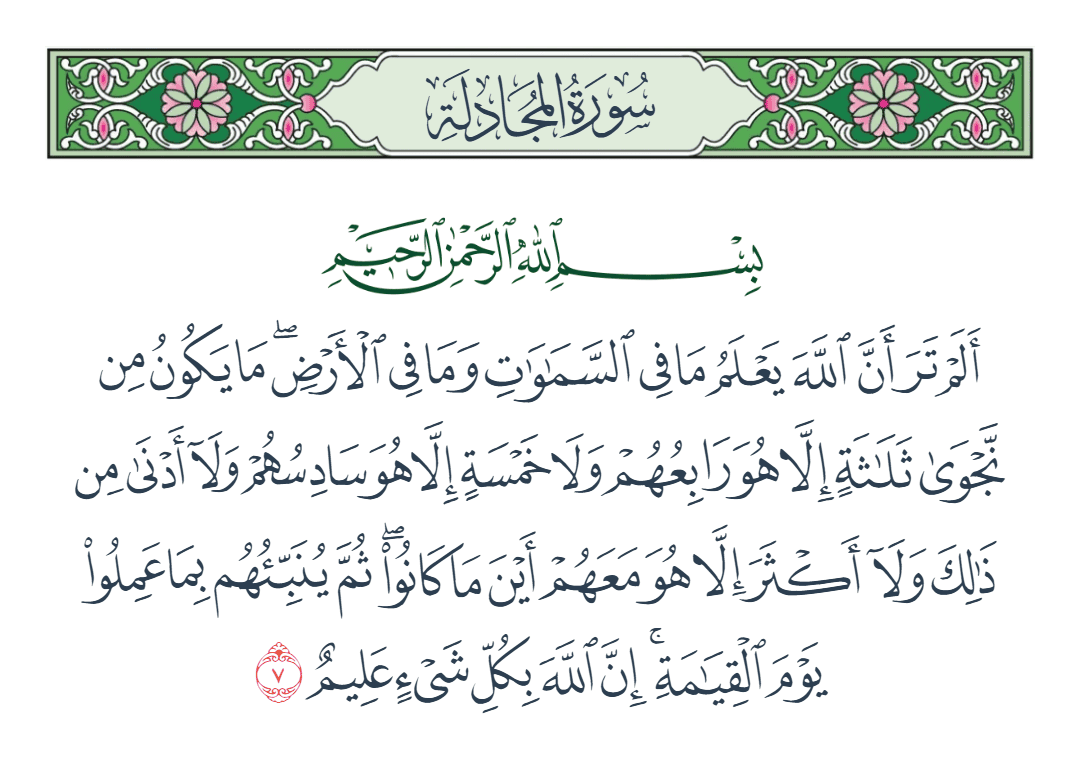 سُورَةُ المُجَادلَةِ
بِسْمِ ٱللَّهِ ٱلرَّحْمَٰنِ ٱلرَّحِيمِ
أَلَمْ تَرَ أَنَّ ٱللَّهَ يَعْلَمُ مَا فِى ٱلسَّمَٰوَٰتِ وَمَا فِى ٱلْأَرْضِ ۖ مَا يَكُونُ مِن
نَّجْوَىٰ ثَلَٰثَةٍ إِلَّا هُوَ رَابِعُهُمْ وَلَا خَمْسَةٍ إِلَّا هُوَ سَادِسُهُمْ وَلَآ أَدْنَىٰ مِن
ذَٰلِكَ وَلَآ أَكْثَرَ إِلَّا هُوَ مَعَهُمْ أَيْنَ مَا كَانُوا۟ ۖ ثُمَّ يُنَبِّئُهُم بِمَا عَمِلُوا۟
يَوْمَ ٱلْقِيَٰمَةِ ۚ إِنَّ ٱللَّهَ بِكُلِّ شَىْءٍ عَلِيمٌ ٧